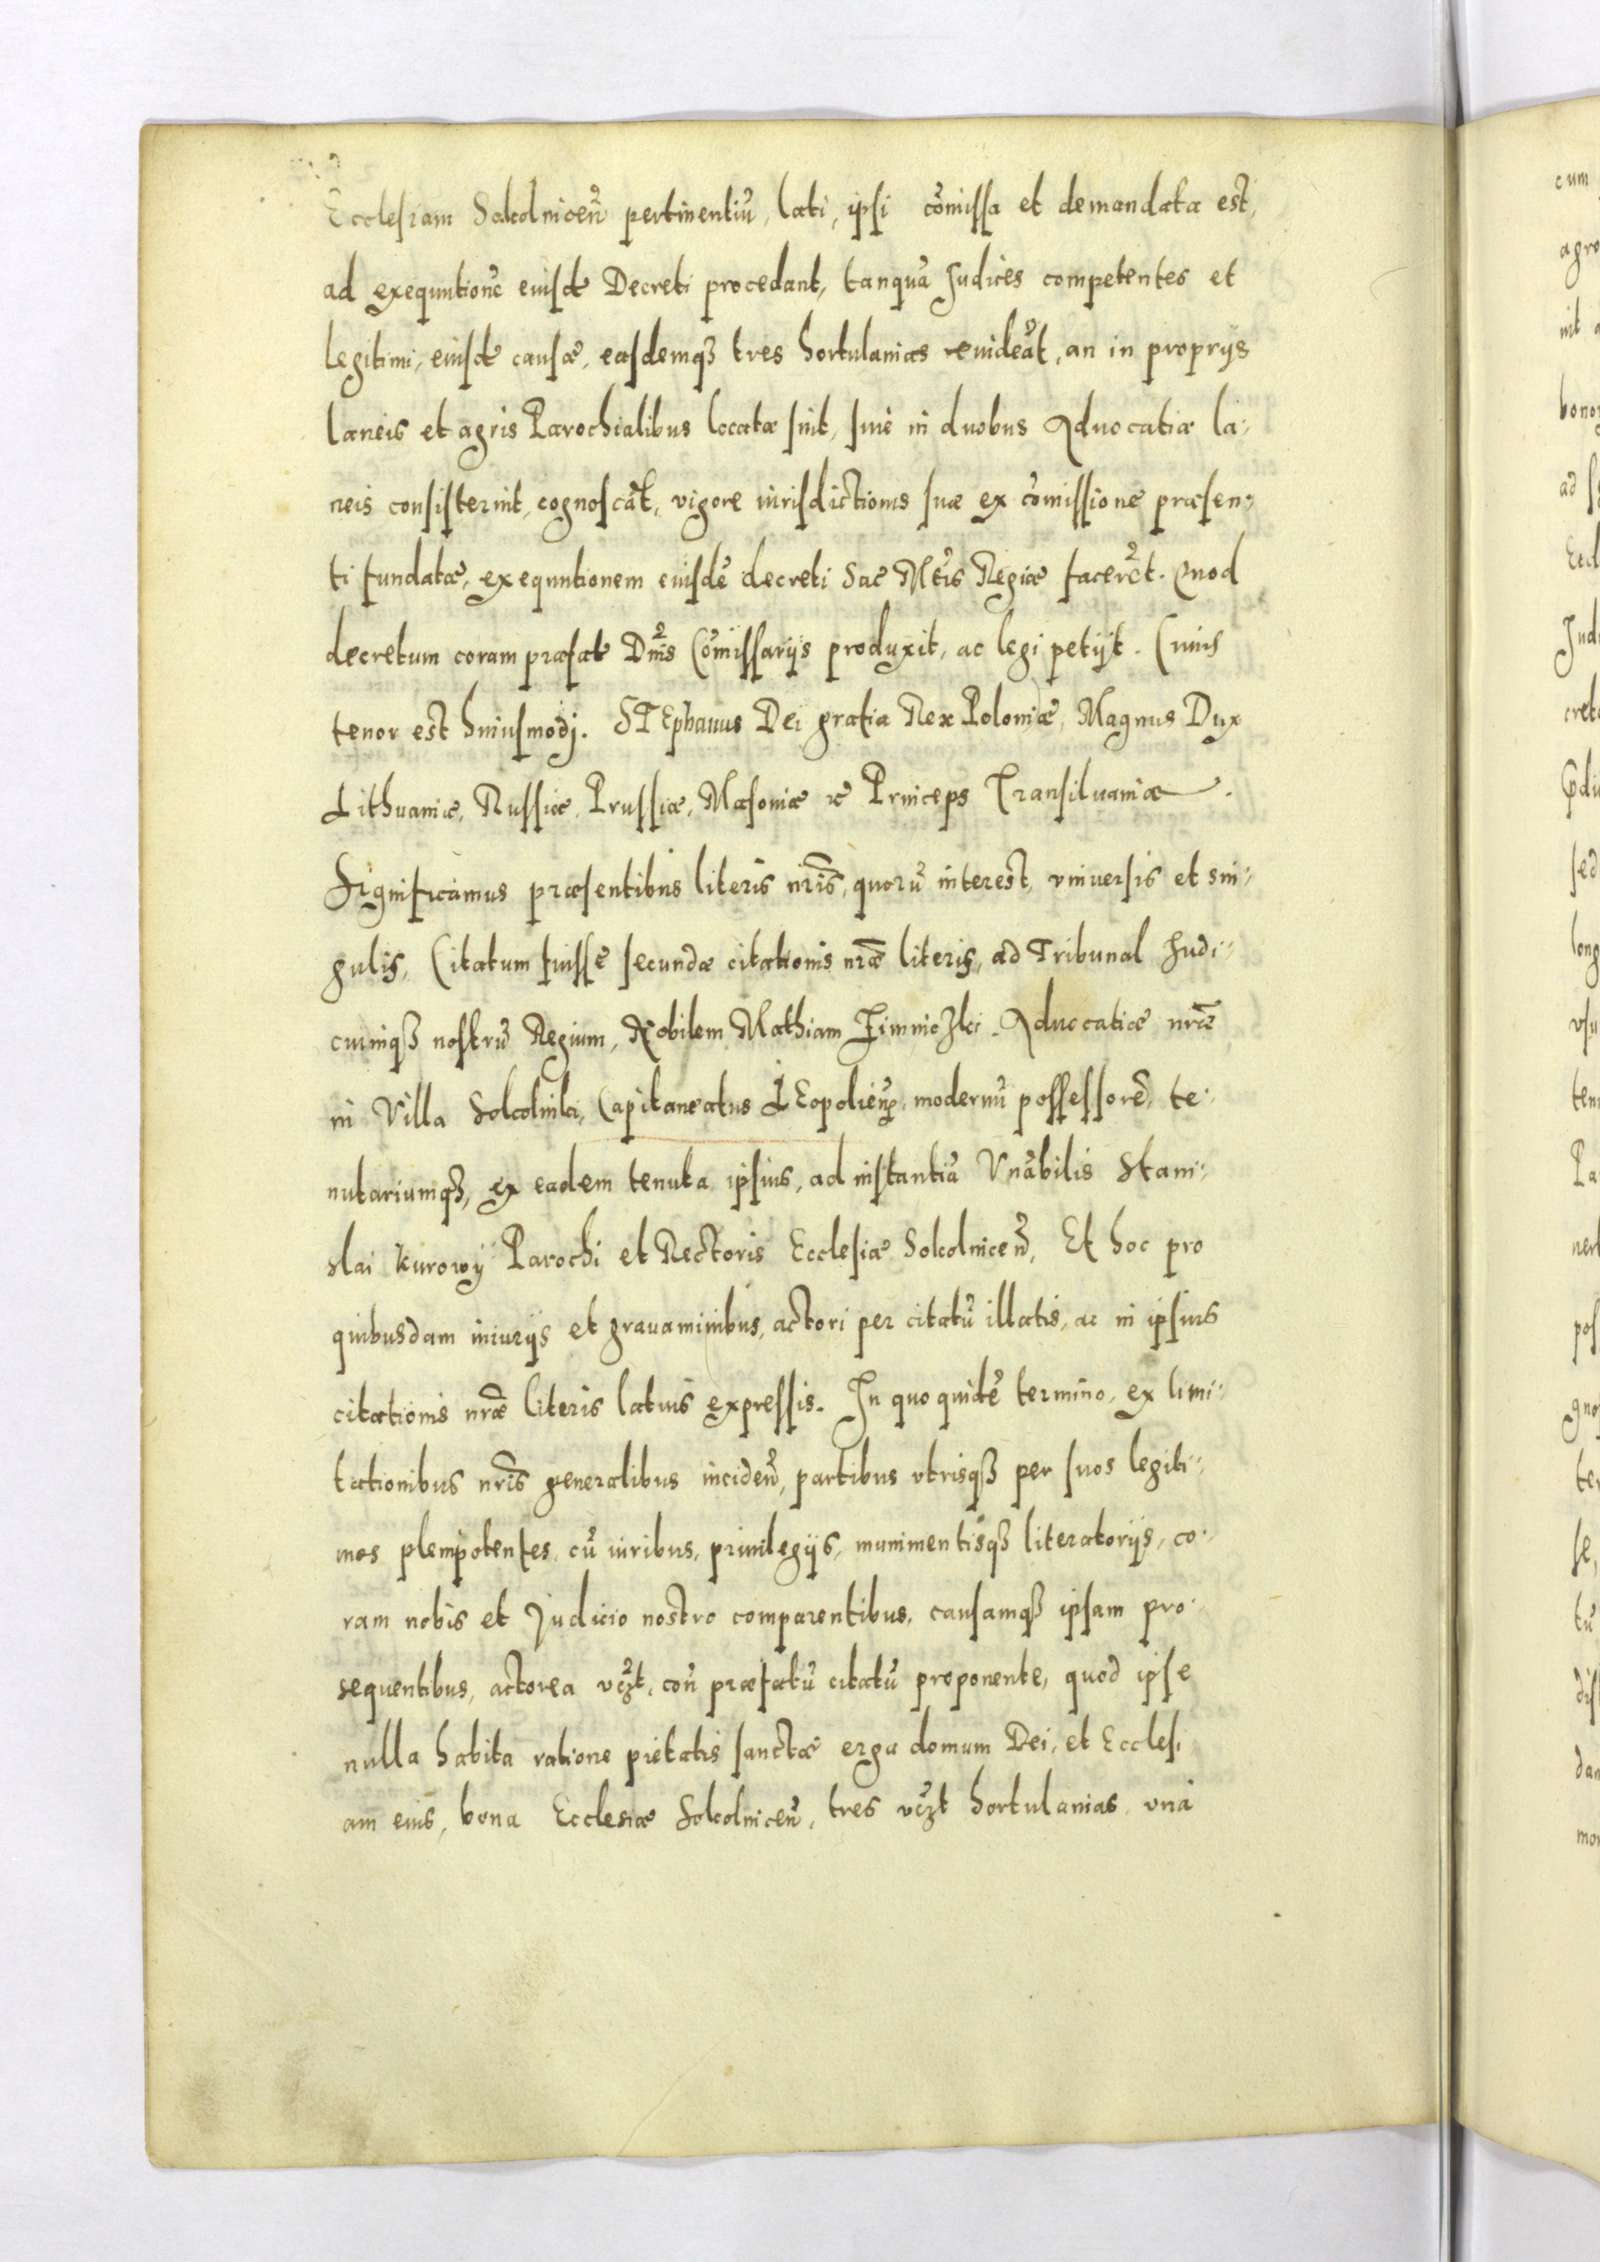 Ecclesiam Sokolniceñ pertinentiũ, lati, ipsi cõmissa et demandata est,
ad exequutionẽ eiusdẽ Decreti procedant, tanquã Judices competentes et
legitimi, eiusdẽ causæ, easdemqꝫ tres hortulanias reuideãt, an in proprijs
laneis et agris Parochialibus locatæ sint, siue in duobus Aduocatiæ la-
neis consisterint, cognoscãt, vigore iurisdictionis suæ ex cõmissione præsen-
ti fundatæ, exequutionem eiusdẽ decreti Sac Mtis Regiæ facerẽt. Quod
decretum coram præfat Dnis Cõmissarijs produxit, ac legi petijt. Cuius
tenor est huiusmodj. STEphanus Dei gratia Rex Poloniæ, Magnus Dux
Lithuaniæ, Russiæ, Prussiæ, Masouiæ &c Princeps Transiluaniæ.
Significamus præsentibus literis nr̃is, quorũ interest, vniuersis et sin-
gulis, Citatum fuisse secundæ citationis nr̃æ literis, ad Tribunal Judi-
ciumqꝫ nostrũ Regium, Nobilem Mathiam Zimnic Aduocatiæ nr̃æ
in Villa Sokolniki, Capitaneatus LEopolieñ, modernũ possessorẽ, te-
nutariumqꝫ, ex eadem tenuta ipsius, ad instantiã Vnãbilis Stani-
slai Kurowy Parochi et Rectoris Ecclesiæ Sokolniceñ, Et hoc pro
quibusdam iniurijs et grauaminibus, actori per citatũ illatis, ac in ipsius
citationis nr̃æ literis latius expressis. In quo quidẽ termino, ex limi-
tationibus nr̃is generalibus incideñ, partibus vtrisqꝫ per suos legiti-
mos plenipotentes, cũ iuribus, priuilegijs, munimentisqꝫ literatorijs, co-
ram nobis et Judicio nostro comparentibus, causamqꝫ ipsam pro-
sequentibus, actorea vꝫt, coñ præfatũ citatũ proponente, quod ipse
nulla habita ratione pietatis sanctæ erga domum Dei, et Ecclesi
am eius, bona Ecclesiæ Sokolniceñ, tres vꝫt hortulanias, vna
cum
agro